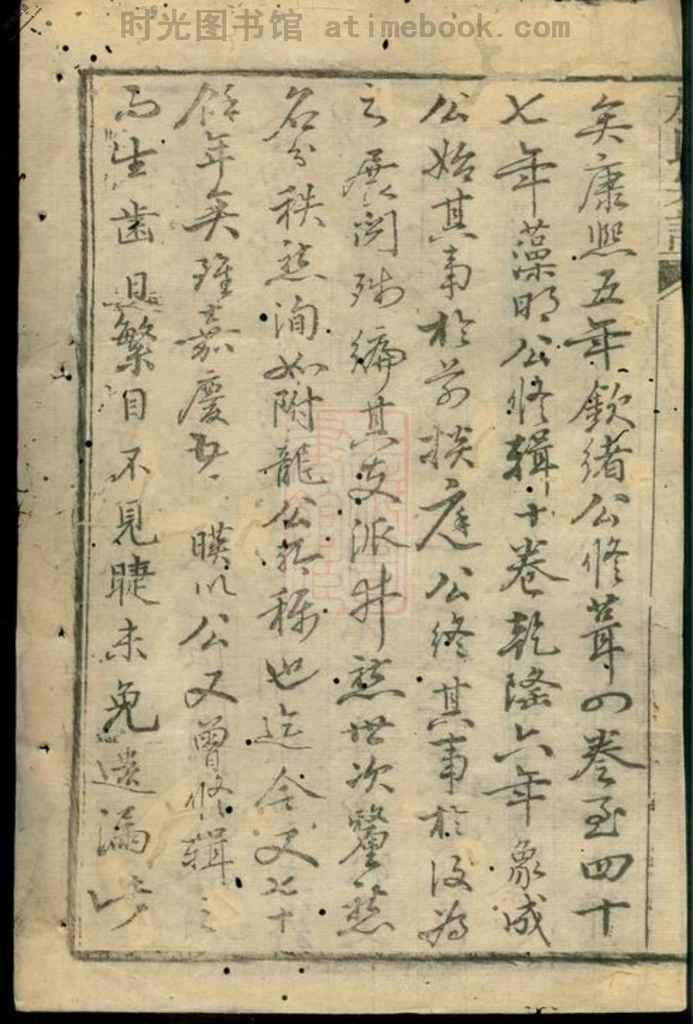 时光图书馆 atimebook.com
矣康熙五年欽緒公修葺四卷至四十
七年藻明公修輯十卷乾隆六年象成
公始其事於前掞庭公終其事於後為
之展閱殘編其支派井然世次釐然
名分秩然洵如附龍公所稱也迄今又七十
餘年矣雖嘉慶 暎以公又曾修輯之
而生齒日繁目不見睫未免遺漏